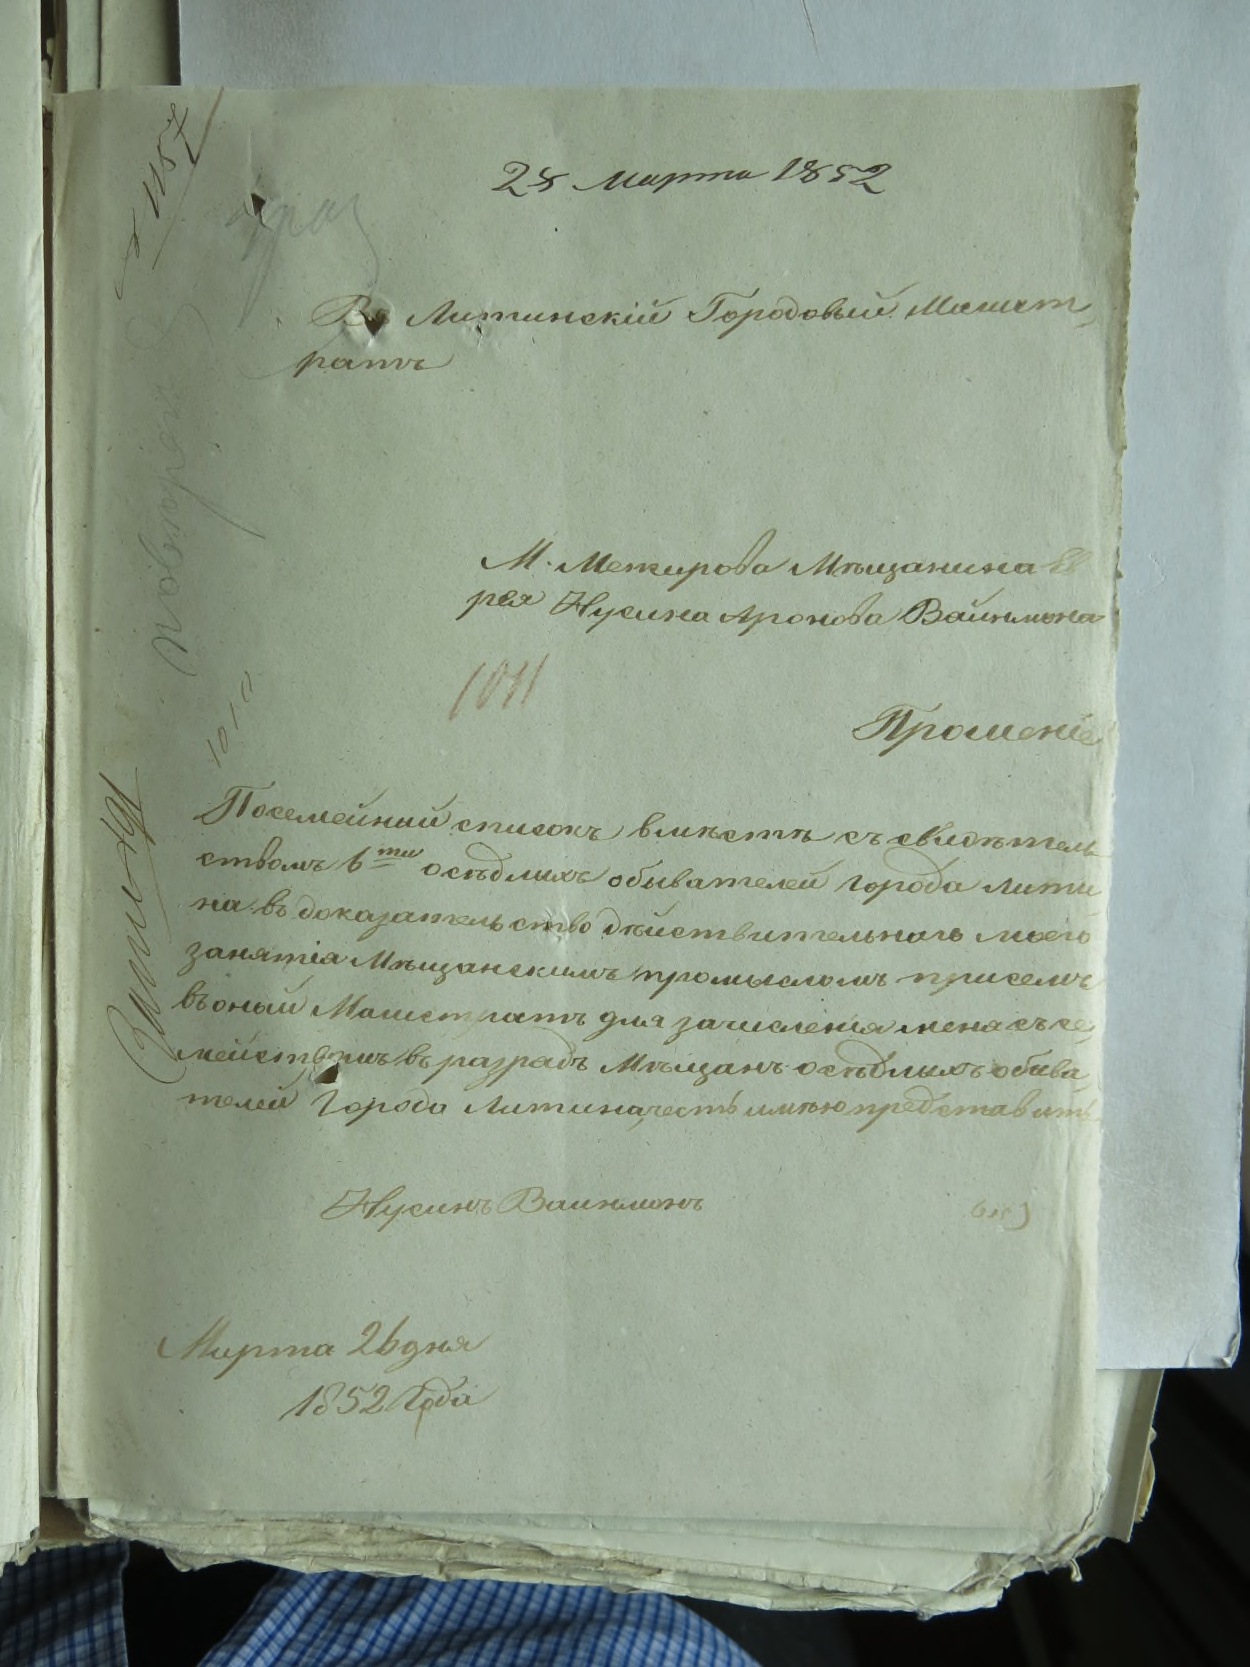 № 1157
28 Марта 1852
Въ Литинскій Городовый Магист-
ратъ
М. Межирова Мѣщанина Ев
рея Нусина Аронова Вайнмана
1011
Прошеніе
1010
Посемейный списокъ вмѣстѣ съ свидѣтель
ствомъ 6ти осѣдлыхъ обывателей города Лити
на въ доказательство дѣйствительнаго моего
занятія Мѣщанскимъ промысломъ при семъ
въ оный Магистратъ для зачисленія меня съ се
мействомъ въ разрядъ Мѣщанъ осѣдлыхъ обыва
телей Города Литина, честь имѣю представить
Нусинъ Вайнманъ
Марта 26 дня
1852 Года